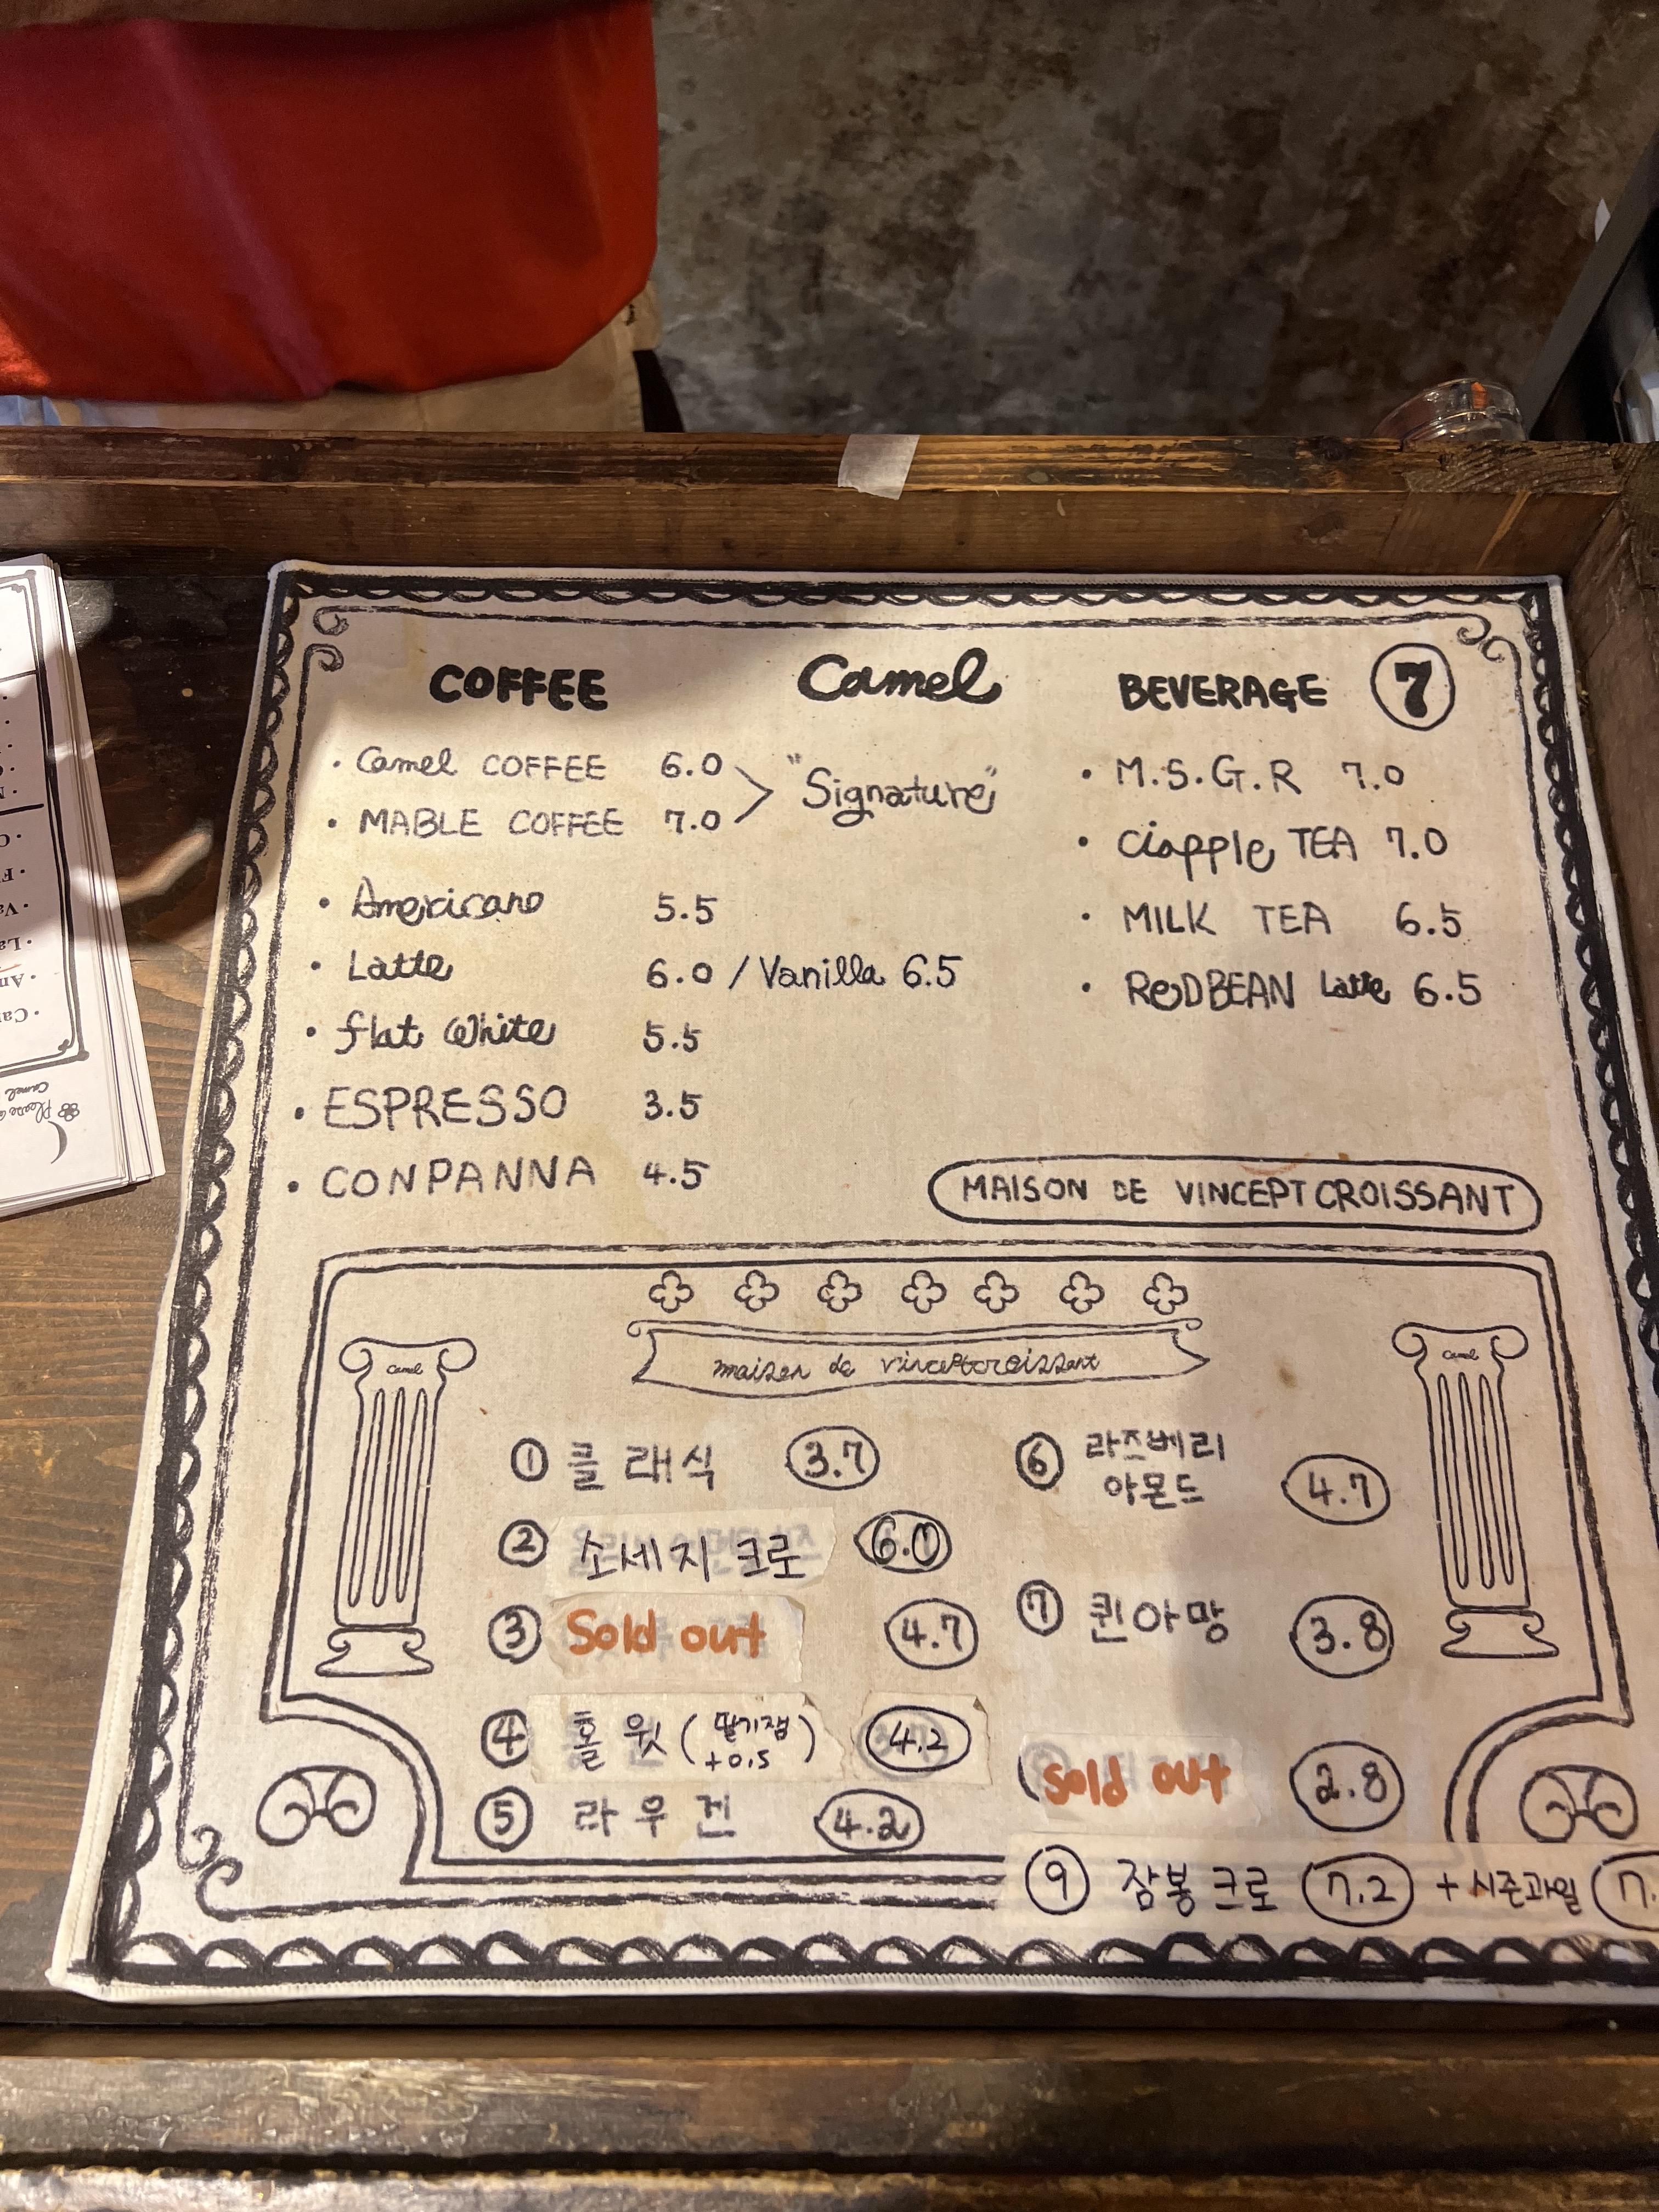 COFFEE
Camel
BEVERAGE 7
· Camel COFFEE 6.0
· MABLE COFFEE 7.0
"Signature"
· Americano 5.5
· Latte 6.0 / Vanilla 6.5
· flat white 5.5
· ESPRESSO 3.5
· CONPANNA 4.5
· M.S.G.R 7.0
· Ciapple TEA 7.0
· MILK TEA 6.5
· ReDBEAN Latte 6.5
MAISON DE VINCEPTCROISSANT
Camel
maison de vinceptcroissant
Camel
① 클래식 3.7
② 소세지 크로 6.0
③ Sold out 4.7
④ 홀윗 (딸기잼 +0.5) 4.2
⑤ 라우겐 4.2
⑥ 라즈베리
아몬드 4.7
⑦ 퀸아망 3.8
Sold out 2.8
⑨ 잠봉크로 7.2 + 시즌과일
Please
Camel